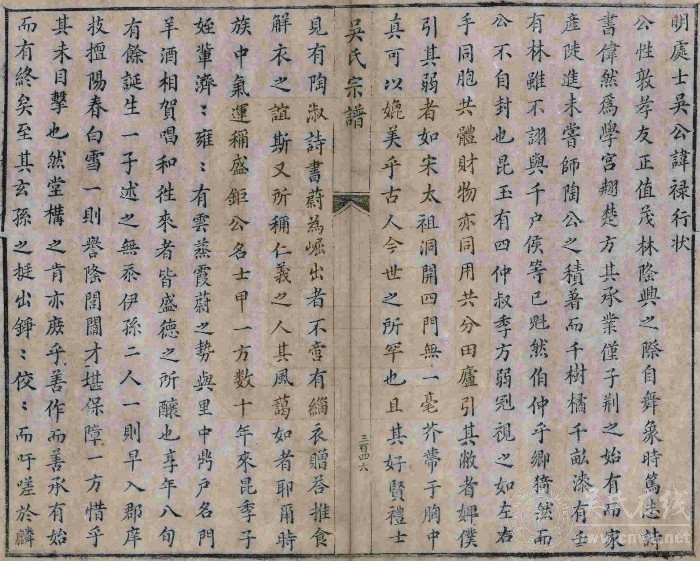 明處士吳公諱祿行狀
公性敦孝友正值茂林隆興之際自舞象時篤志詩
書偉然為學宮翹楚方其承業僅子荆之始有而家
產陡進未嘗師陶公之積著而千樹橘千畝漆有壬
有林雖不詡與千户侯等已魁然伯仲乎鄉獐然而
公不自封也昆玉有四仲叔季方弱冠視之如左右
手同胞共體財物亦同用共分田廬引其敝者婢僕
引其弱者如宋太祖洞開四門無一毫芥蒂于胸中
真可以媲美乎古人今世之所罕也且其好賢禮士
吳氏宗譜
三百四六
見有陶淑詩書蔚為崛出者不啻有緇衣贈荅推食
解衣之誼斯又所稱仁義之人其風藹如者耶爾時
族中氣運稱盛鉅公名士甲一方数十年來昆季子
姪輩濟〻雍〻有雲蒸霞蔚之勢與里中户名門
羊酒相賀唱和往來者皆盛德之所釀也享年八旬
有餘誕生一子述之無忝伊孫二人一則早入郡庠
技擅陽春白雪一則譽隆閭閻才堪保障一方惜乎
其未目擊也然堂構之肯亦庶乎善作而善承有始
而有終矣至其玄孫之挺出錚〻佼〻而吁嗟於麟
吳氏在线
www.cnwu.net